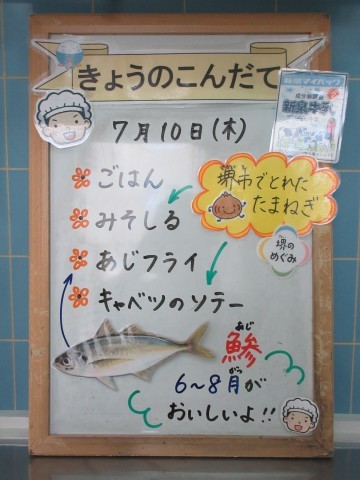 きょうのこんだて
7月10日(木)
ごはん
みそしる
あじフライ
キャベツのソテー
堺市でとれた
たまねぎ
堺の
めぐみ
あじ
鯵
6～8月が
おいしいよ!!